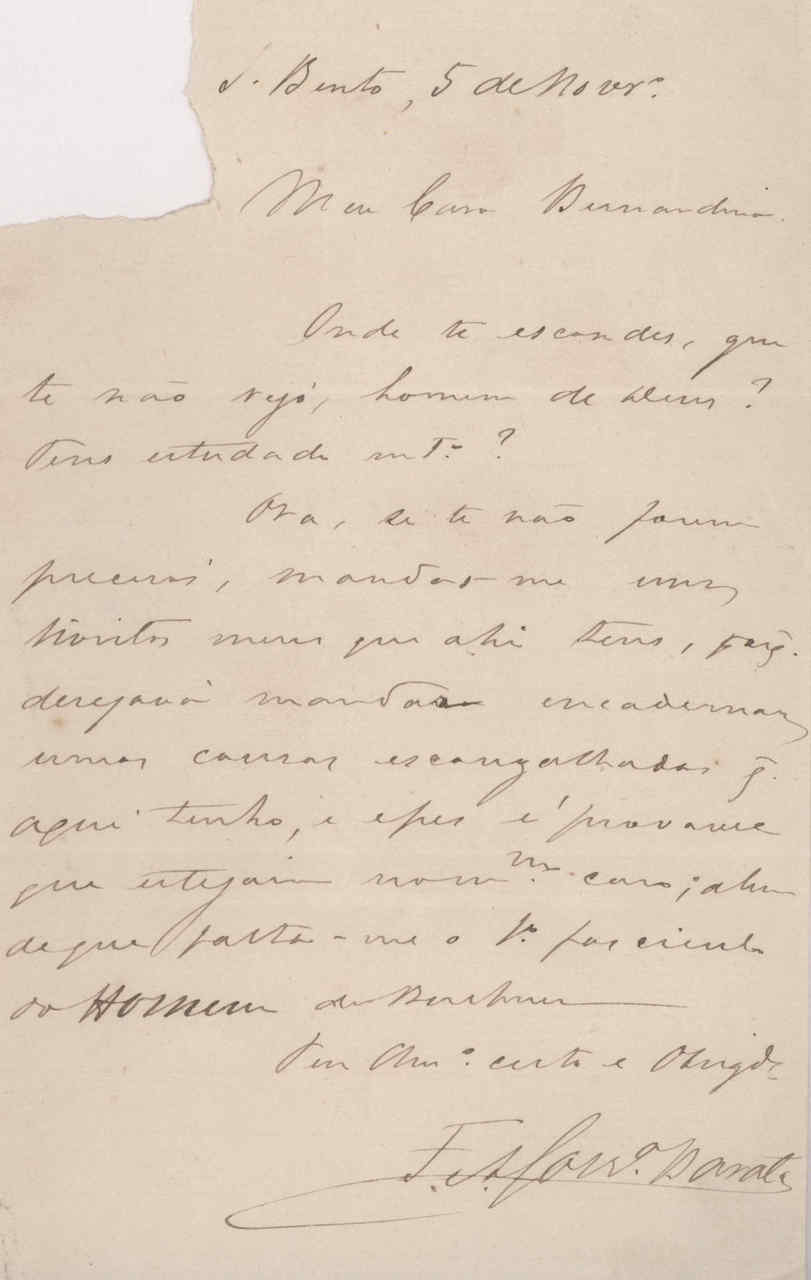 S. Bento, 5 de Novr.º
Meu Caro Bernardino.
Onde te escondes, que
te não vejo, homem de Deus?
Tens estudado mt.º?
Ora, se te não forem
precisos, manda-me uns
livritos meus que ahi tens, porq̃.
desejava mandar encadernar
umas cousas escangalhadas q̃.
aqui tenho, e esses é provavel
que estejam no m.mo caso; alem
de que falta-me o 1.º fasciculo
do Homem de Buchner
Teu Am.º certo e Obrigd.º
F. A. Barata